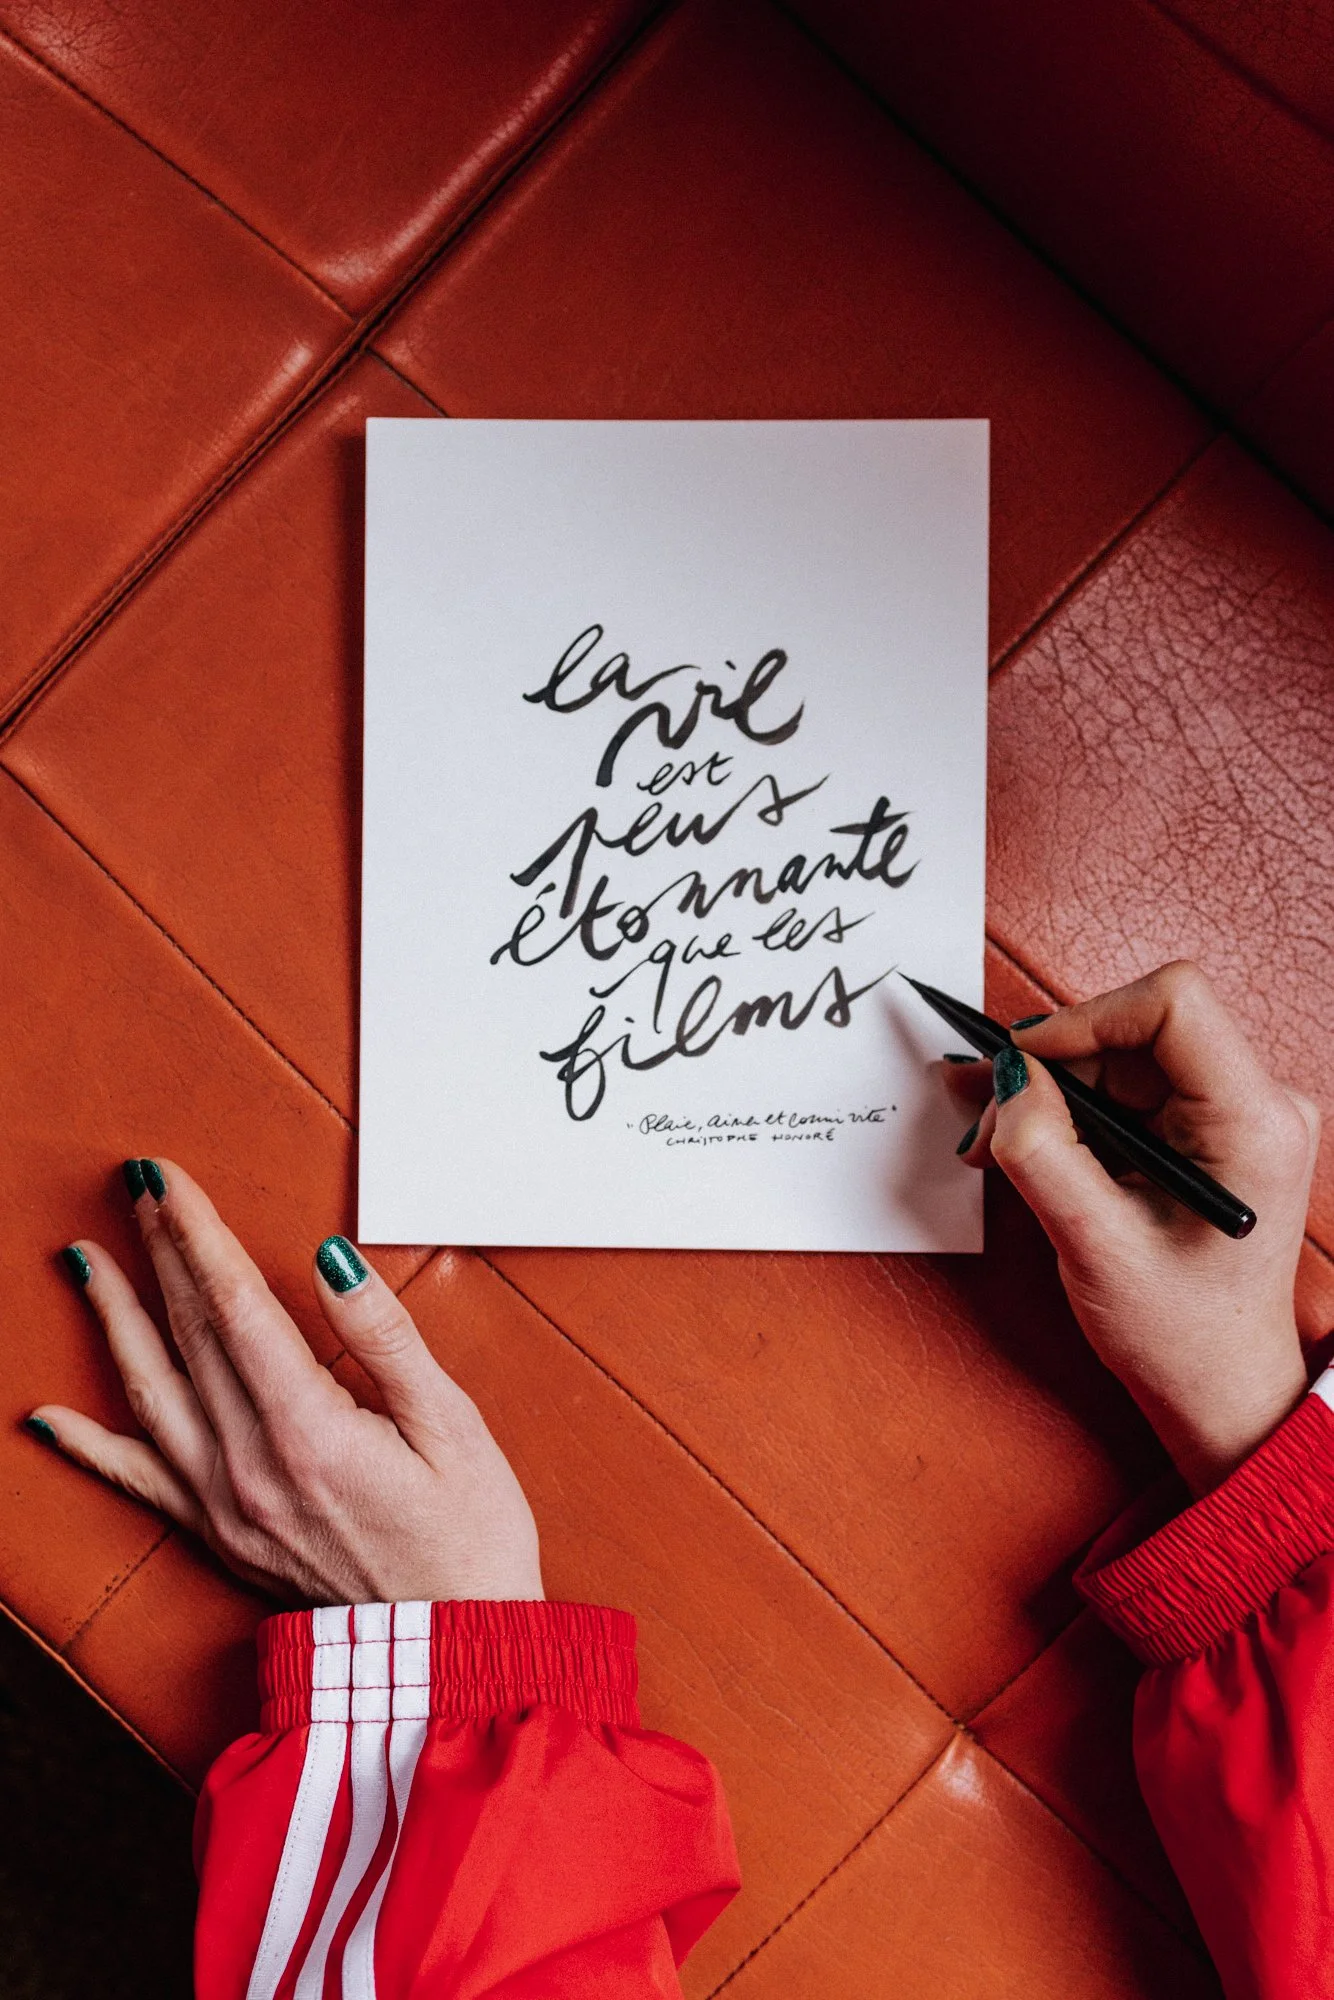 la vie
est
plus
étonnante
que les
films
"Plaire, aimer et courir vite"
CHRISTOPHE HONORÉ